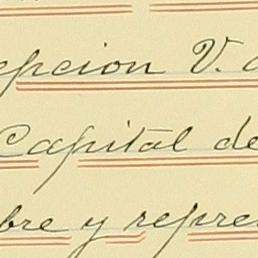 epcion V. d
Capital de
bre y repre